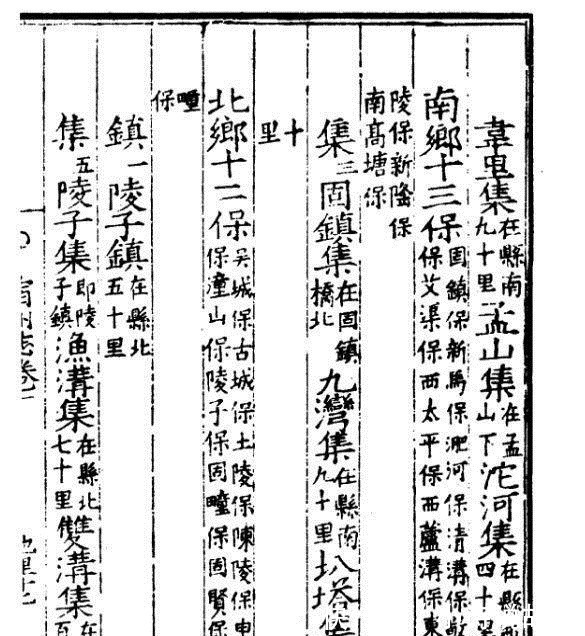 韋里集在縣南九十里孟山集在孟山下沱河集在縣四十
南鄉十三保固鎮保新馬保淝河保清溝保保艾渠保西太平保西蘆溝保東
陵保新隆保南高塘保
集三固鎮集在固鎮橋北九灣集在縣南九十里圤塔集
十里
北鄉十二保吳城保古城保土陵保陳陵保申保潼山保陵子保固疃保固賢保
疃保
鎮一陵子鎮在縣北五十里
集五陵子集即陵子鎮漁溝集在縣北七十里雙溝集在百